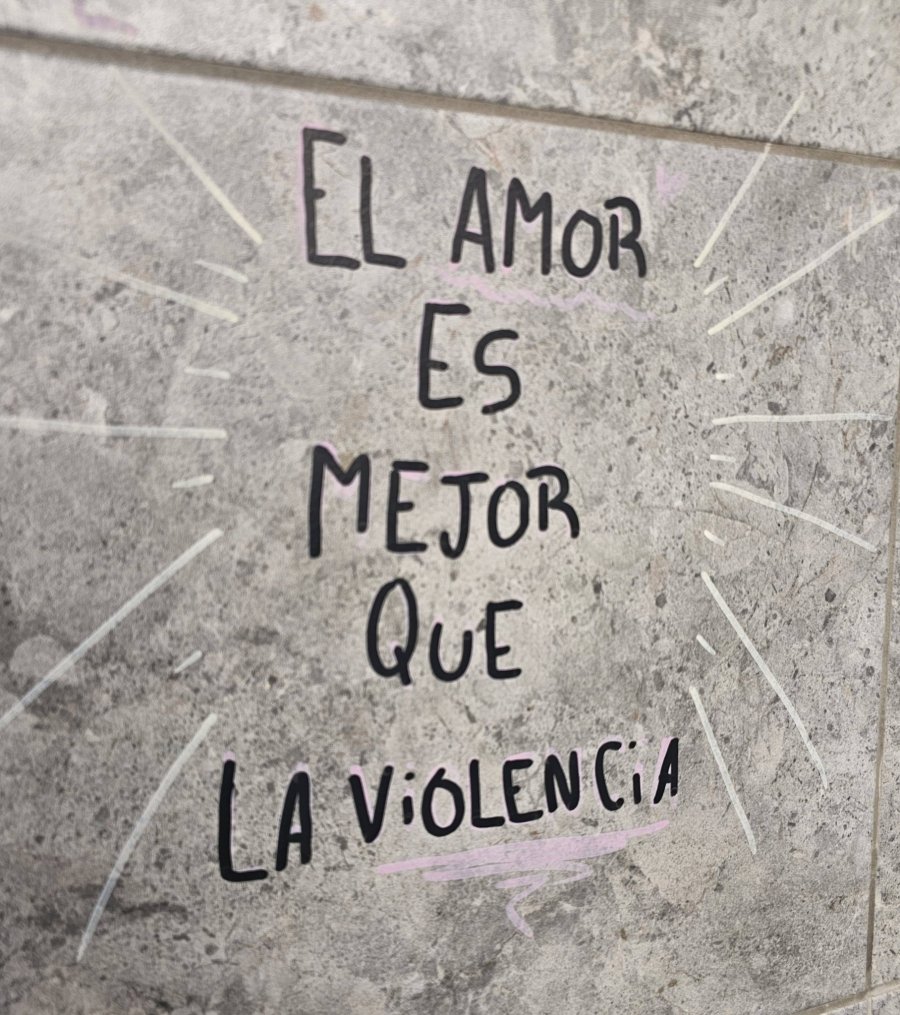 EL AMOR
ES
MEJOR
QUE
LA ViOLENCiA